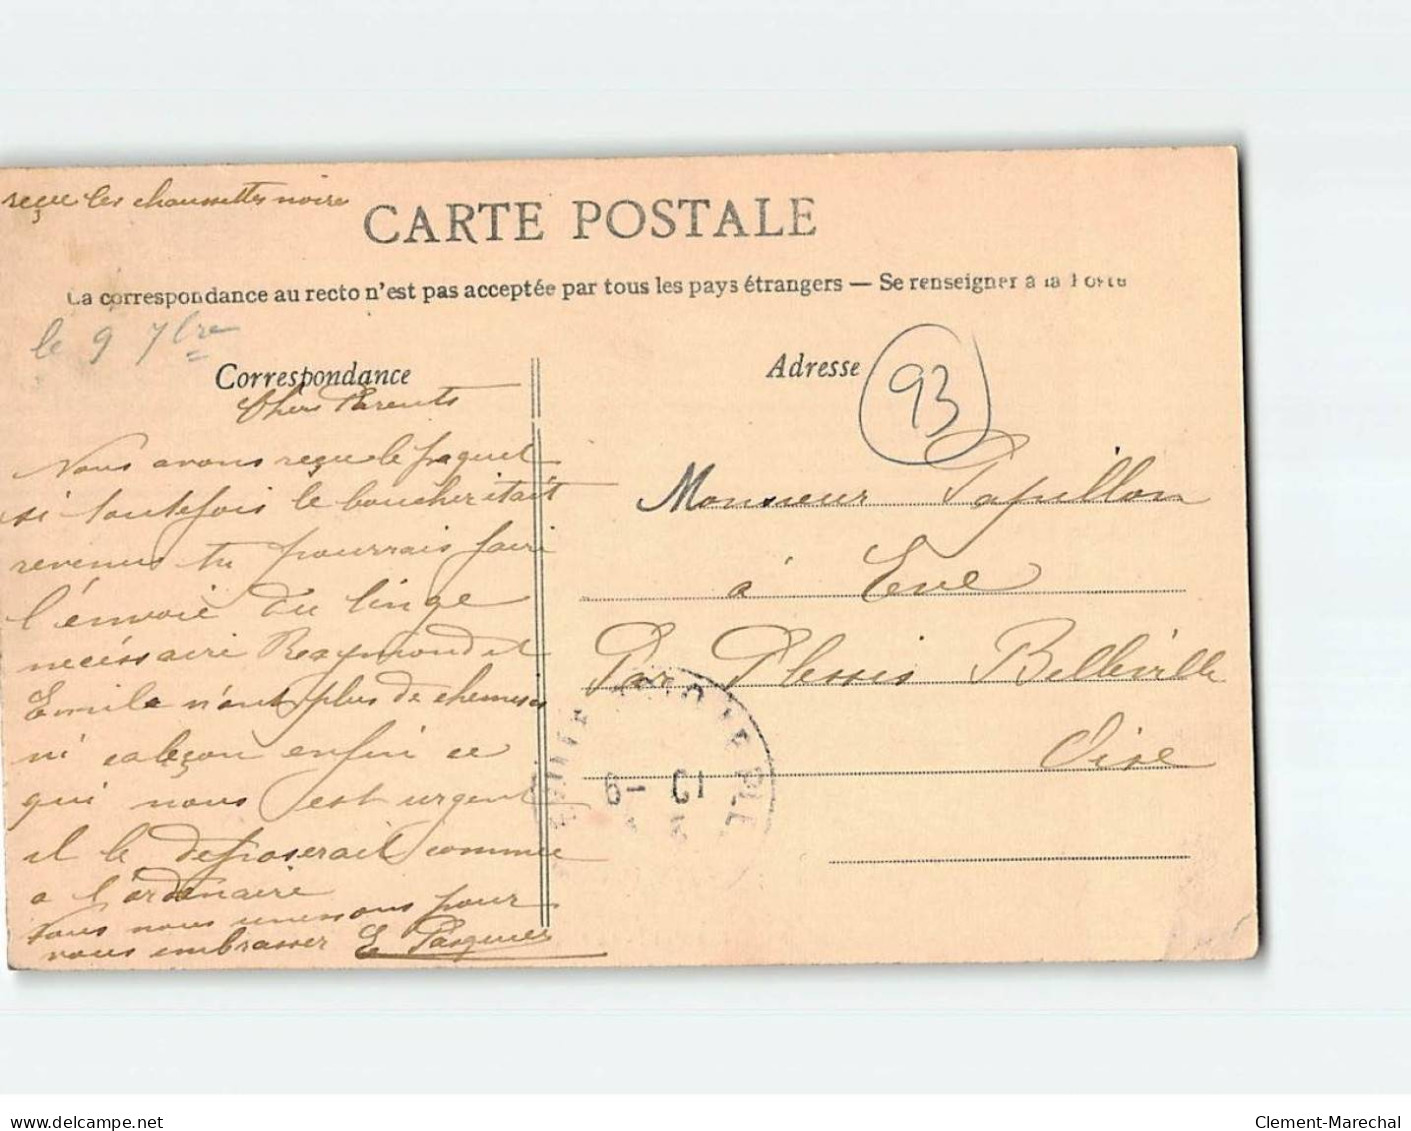 reçu les chaussettes noire
CARTE POSTALE
La correspondance au recto n'est pas acceptée par tous les pays étrangers — Se renseigner à la Poste
le 9 7bre
Correspondance
Adresse
93
Chers Parents
Nous avons reçu le paquet
si toutefois le boucher était
revenus tu pourrais faire
l'énvoie du linge
necéssaire Raymond et
Emile n'ont plus de chemises
ni caleçon enfin ce
qui nous est urgent
il le deposerait comme
a l'ordenaire
Tous nous unissons pour
vous embrasser E Pasquier
Monsieur Papillon
à Eve
Par Plessis Belleville
Oise
6 - 10
delcampe.net
Clement-Marechal